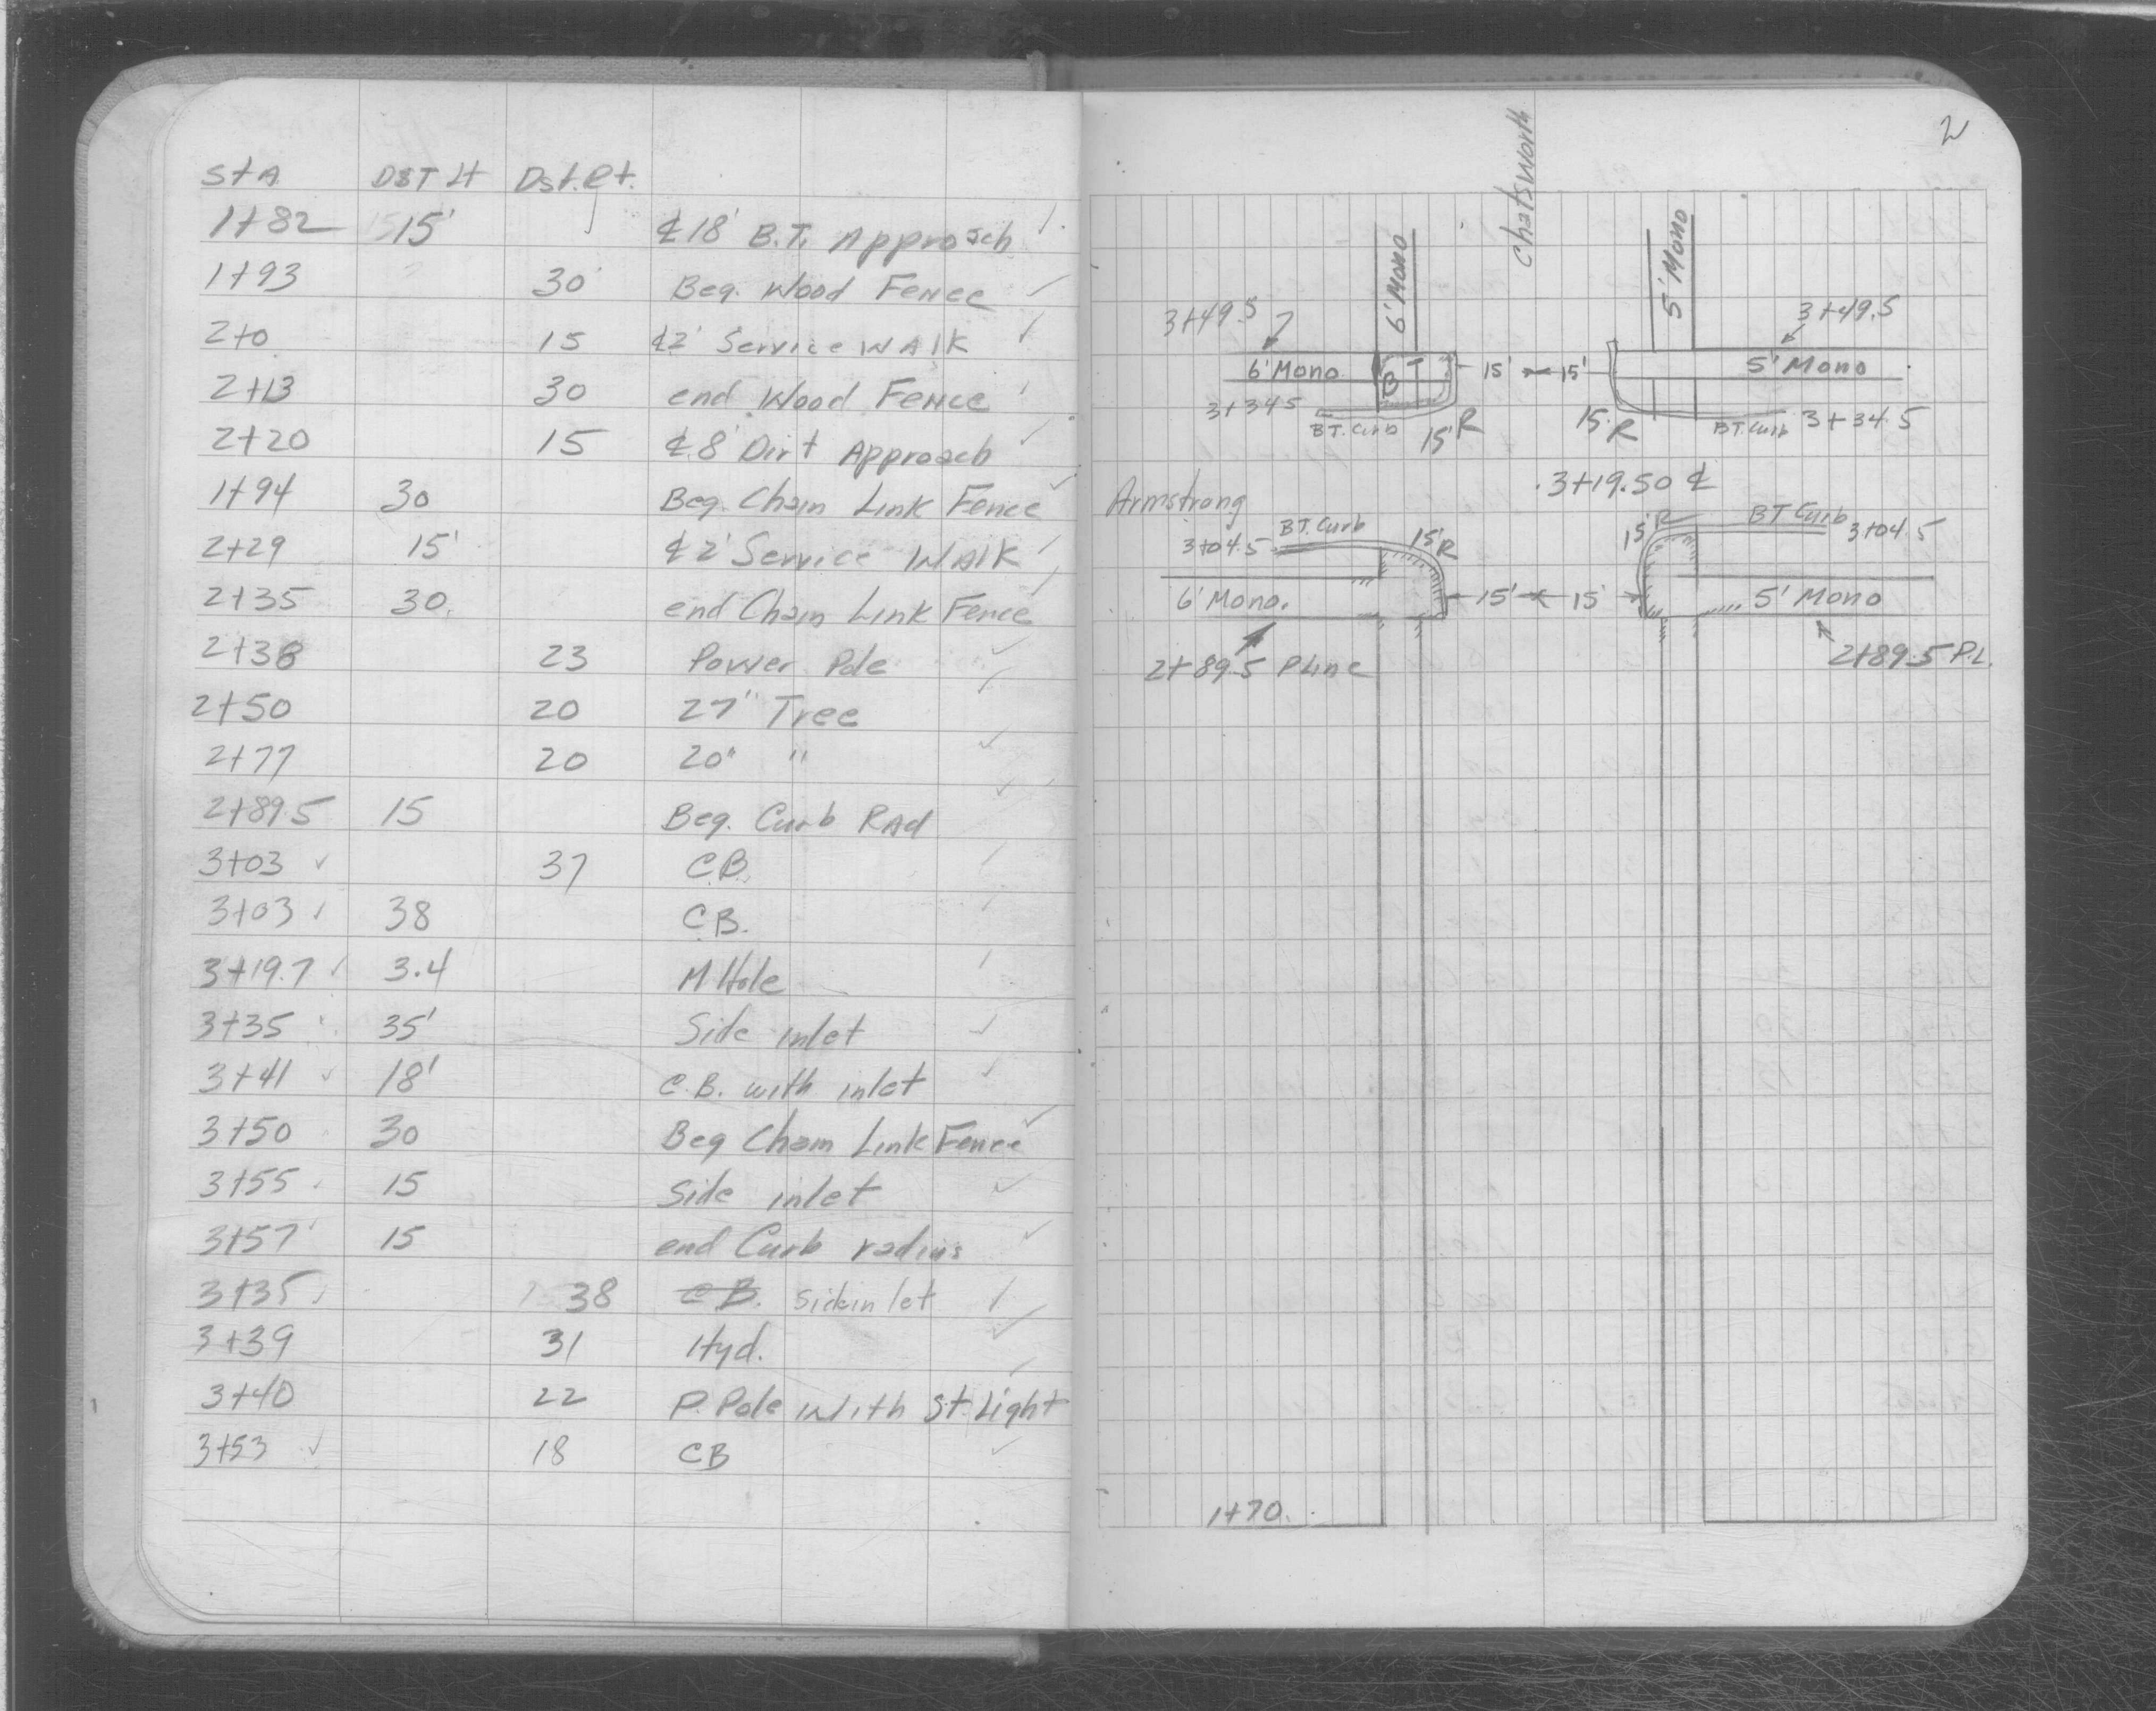 StA DST Lt Dst.Rt.
1+82 15' ℄ 18' B.T. Approach
1+93 30 Beg. Wood Fence
2+0 15 ℄ 2' Service WAlk
2+13 30 end Wood Fence
2+20 15 ℄ 8' Dirt Approach
1+94 30 Beg. Chain Link Fence
2+29 15' ℄ 2' Service WAlk
2+35 30. end Chain Link Fence
2+38 23 Power Pole
2+50 20 27" Tree
2+77 20 20" "
2+89.5 15 Beg. Curb RAd
3+03 ✓ 37 C.B.
3+03 ✓ 38 C.B.
3+19.7 ✓ 3.4 M Hole
3+35 35' Side inlet
3+41 ✓ 18' C.B. with inlet
3+50 30 Beg Chain Link Fence
3+55 15 Side inlet
3+57 15 end Curb radius
3+35 38 C.B. Sideinlet
3+39 31 Hyd.
3+40 22 P. Pole With St. Light
3+53 ✓ 18 CB
2
Chatsworth
6' Mono
5' Mono
3+49.5 3+49.5
6' Mono B T 15' 15' 5' Mono
3+34.5 BT. Curb 15' R 15' R BT. Curb 3+34.5
3+19.50 ℄
Armstrong
3+04.5 BT. Curb 15' R 15' R BT Curb 3+04.5
6' Mono. 15' 15' 5' Mono
2+89.5 PLine 2+89.5 P.L.
1+70.